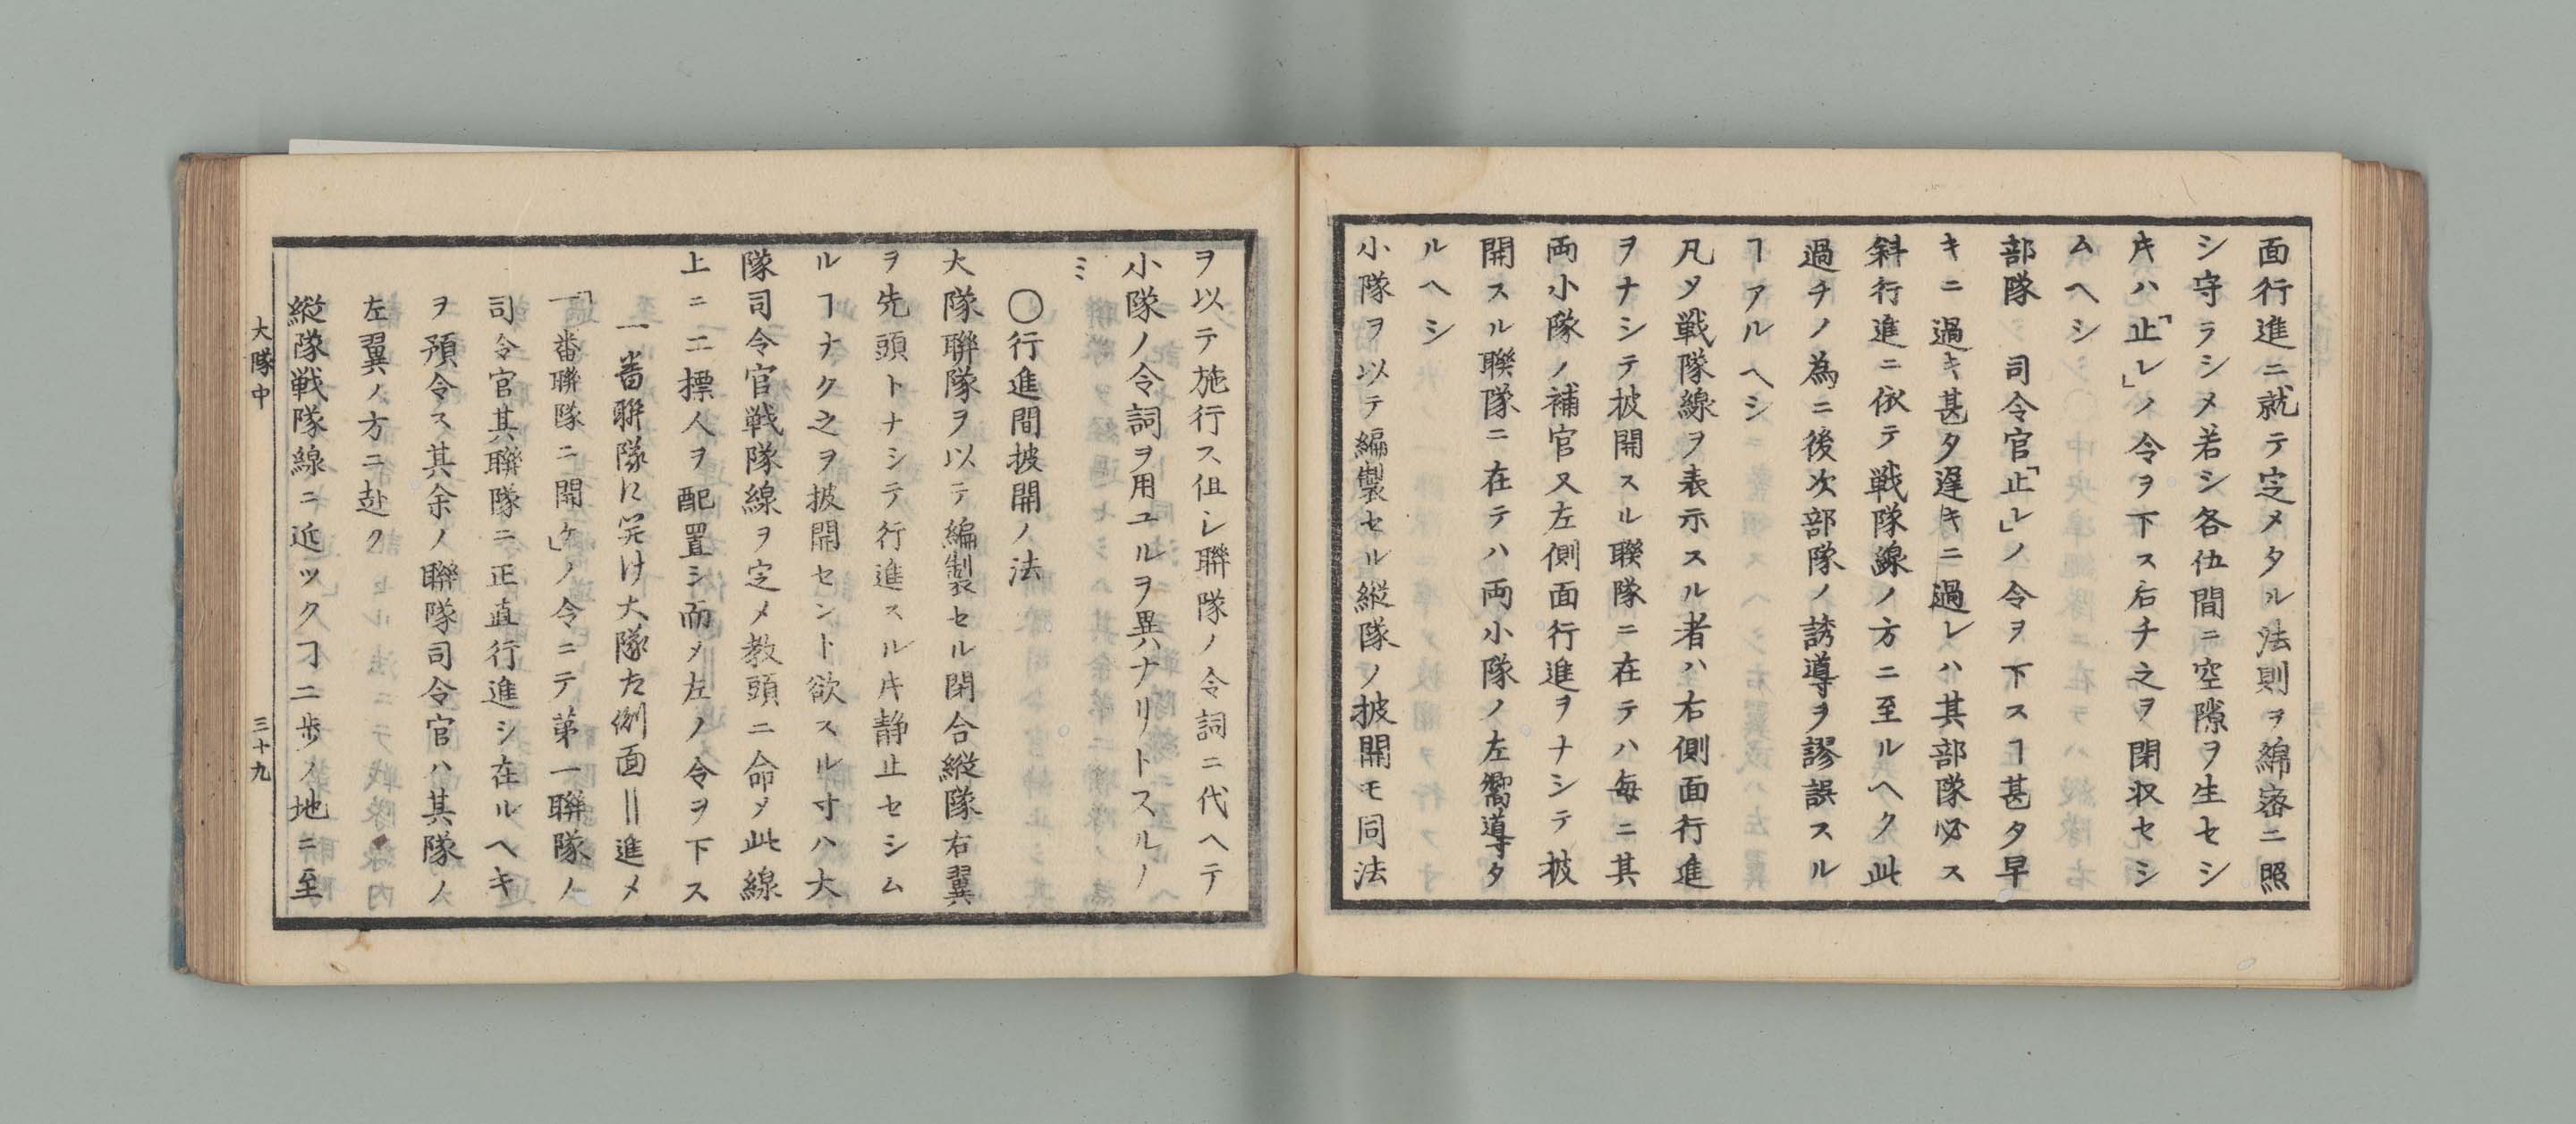 面行進ニ就テ定メタル法則ヲ綿密ニ照
シ守ラシメ若シ各伍間ニ空隙ヲ生セシ
𪜈ハ「止レ」ノ令ヲ下ス后チ之ヲ閉収セシ
ムヘシ
部隊司令官「止レ」ノ令ヲ下スヿ甚タ早
キニ過キ甚タ遅キニ過レハ其部隊必ス
斜行進ニ依テ戦隊線ノ方ニ至ルヘク此
過チノ為ニ後次部隊ノ誘導ヲ謬誤スル
ヿアルヘシ
凡ソ戦隊線ヲ表示スル者ハ右側面行進
ヲナシテ披開スル聯隊ニ在テハ毎ニ其
両小隊ノ補官又左側面行進ヲナシテ披
開スル聯隊ニ在テハ両小隊ノ左嚮導タ
ルヘシ
小隊ヲ以テ編製セル縦隊ノ披開モ同法
ヲ以テ施行ス但シ聯隊ノ令詞ニ代ヘテ
小隊ノ令詞ヲ用ユルヲ異ナリトスルノ
ミ
〇行進間披開ノ法
大隊聯隊ヲ以テ編製セル閉合縦隊右翼
ヲ先頭トナシテ行進スル𪜈静止セシム
ルヿナク之ヲ披開セント欲スル寸ハ大
隊司令官戦隊線ヲ定メ教頭ニ命メ此線
上ニ二標人ヲ配置シ而メ左ノ令ヲ下ス
一番聯隊に開け大隊左側面||進メ
「一番聯隊ニ開ケ」ノ令ニテ第一聯隊ノ
司令官其聯隊ニ正直行進シ在ルヘキ
ヲ預令ス其余ノ聯隊司令官ハ其隊ノ
左翼ノ方ニ赴ク
縦隊戦隊線ニ近ツクヿ二歩ノ地ニ至
大隊中
三十九